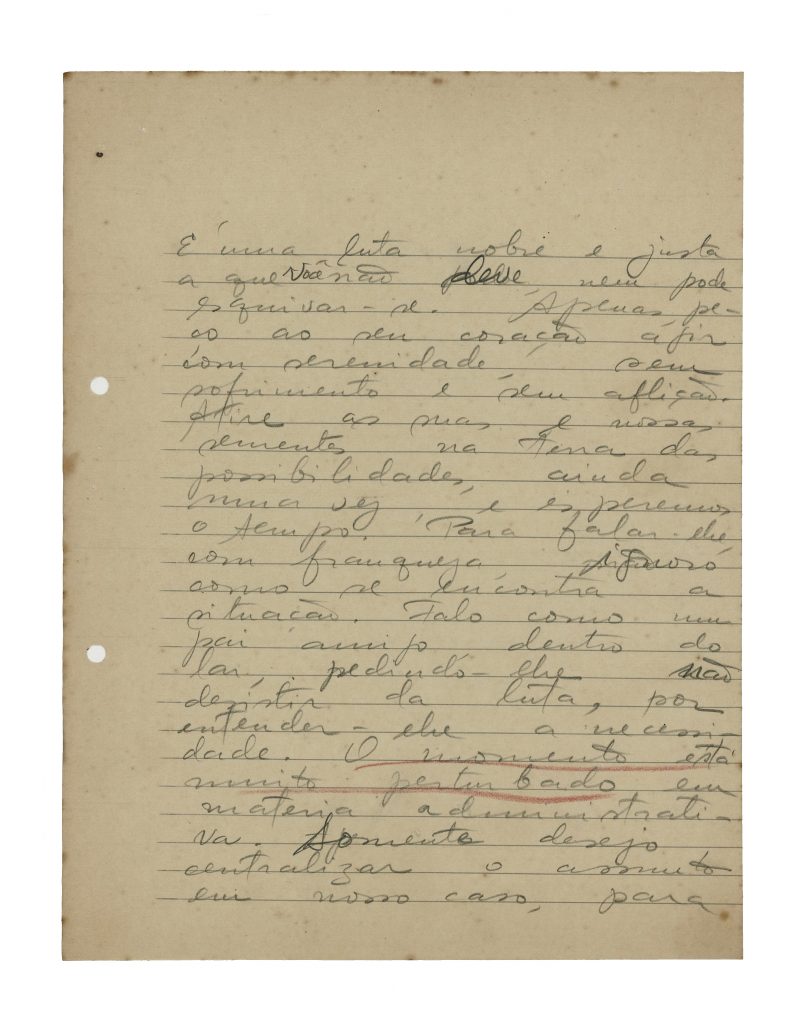 É uma luta nobre e justa
a que você não deve, nem pode
esquivar-se. Apenas pe-
ço ao seu coração agir
com serenidade, sem
sofrimento e sem aflição.
Atire as suas e nossas
sementes na terra das
possibilidades, ainda
uma vez, e esperemos
o tempo. Para falar-lhe
com franqueza, ignoro
como se encontra a
situação. Falo como um
pai amigo dentro do
lar, pedindo-lhe não
desistir da luta, por
entender-lhe a necessi-
dade. O momento está
muito perturbado em
materia administrati-
va. Somente desejo
centralizar o assunto
em nosso caso, para